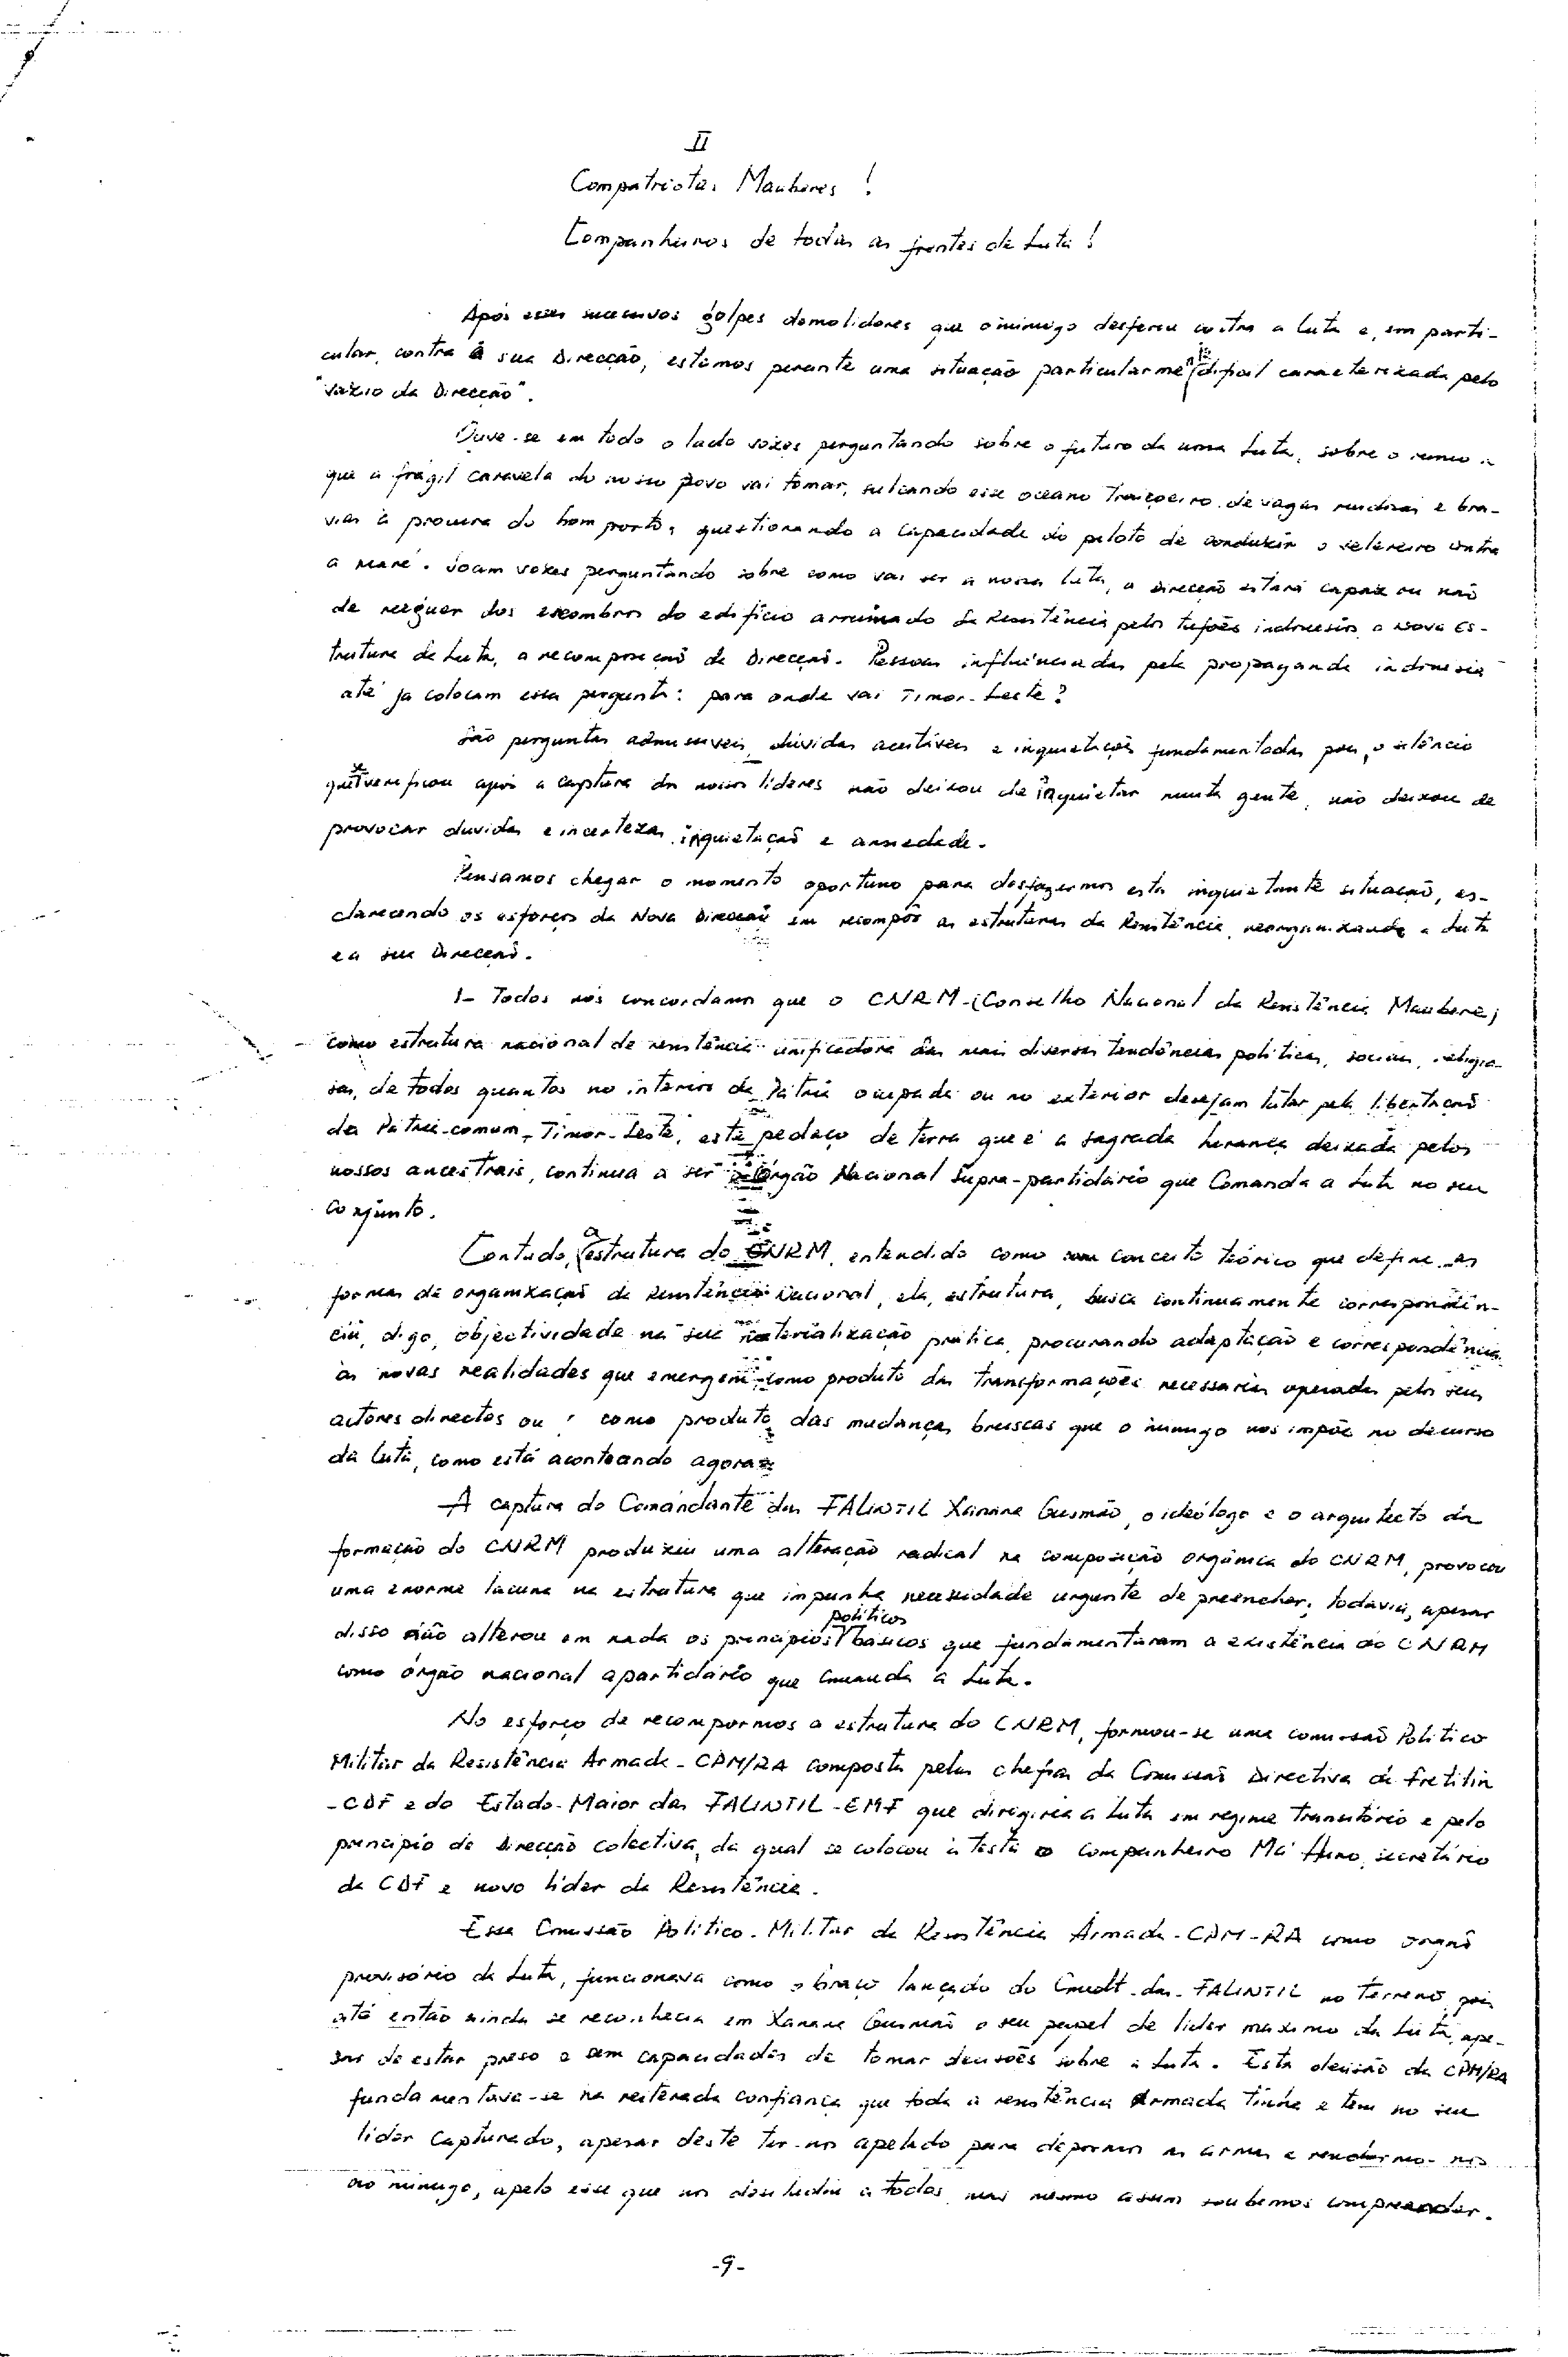 II
Compatriotas Mauberes !
Companheiros de todas as frentes de Luta !
Após esses sucessivos golpes demolidores que o inimigo desferiu contra a luta e, em parti-
cular, contra a sua Direcção, estamos perante uma situação particularmente difícil caracterizada pelo
"vazio da Direcção".
Ouve-se em todo o lado vozes perguntando sobre o futuro da nossa Luta, sobre o rumo a
que a frágil caravela do nosso povo vai tomar, sulcando esse oceano traiçoeiro de vagas e bra-
vias à procura do bom porto, questionando a capacidade do piloto de conduzir o veleiro contra
a maré. Soam vozes perguntando sobre como vai ser a nossa luta, a Direcção estará capaz ou não
de reerguer dos escombros do edifício arruinado da Resistência pelos tufões indonésios a Nova Es-
trutura de Luta, a recomposição da Direcção. Pessoas influenciadas pela propaganda indonésia
até já colocam essa pergunta: para onde vai Timor-Leste?
São perguntas admissíveis, dúvidas aceitáveis e inquietações fundamentadas pois, o silêncio
que se verificou após a captura dos nossos líderes não deixou de inquietar muita gente, não deixou de
provocar duvidas e incertezas, inquietação e ansiedade.
Pensamos chegar o momento oportuno para desfazermos esta inquietante situação, es-
clarecendo os esforços da Nova Direcção em recompôr as estruturas da Resistência, reorganizando a Luta
e a sua Direcção.
1- Todos nós concordamos que o CNRM-(Conselho Nacional da Resistência Maubere)
como estrutura nacional de resistência unificadora das mais diversas tendências politicas, sociais, religio-
sas, de todos quantos no interior da Pátria ocupada ou no exterior desejam lutar pela libertação
da Pátria-comum, Timor-Leste, este pedaço de terra que é a sagrada herança deixada pelos
nossos ancestrais, continua a ser o Órgão Nacional Supra-partidário que Comanda a Luta no seu
conjunto.
Contudo, a estrutura do CNRM, entendido como um conceito teórico que define as
formas de organização da Resistência Nacional, ela, estrutura, busca continuamente correspondên-
cia, digo, objectividade na sua materialização prática, procurando adaptação e correspondência
às novas realidades que emergem como produto das transformações necessárias operadas pelos seus
actores directos ou, como produto das mudanças bruscas que o inimigo nos impõe no decurso
da luta, como está acontecendo agora.
A captura do Comandante das FALINTIL Xanana Gusmão, o ideólogo e o arquitecto da
formação do CNRM produziu uma alteração radical na composição orgânica do CNRM, provocou
uma enorme lacuna na estrutura que impunha necessidade urgente de preencher; todavia, apesar
disso não alterou em nada os princípios políticos básicos que fundamentaram a existência do CNRM
como órgão nacional apartidário que Comanda a Luta.
No esforço de recompormos a estrutura do CNRM, formou-se uma comissão Politico
Militar da Resistência Armada - CPM/RA composta pelas chefias da Comissão Directiva da Fretilin
-CDF e do Estado-Maior das FALINTIL-EMF que dirigiria a luta em regime transitório e pelo
principio de Direcção colectiva, da qual se colocou à testa o companheiro Má Huno, secretário
da CDF e novo lider da Resistência.
Essa Comissão Politico-Militar da Resistência Armada-CPM-RA como orgão
provisório da Luta, funcionava como o braço lançado do Cmdt. das FALINTIL no terreno, pois
até então ainda se reconhecia em Xanana Gusmão o seu papel de lider maximo da Luta, ape-
sar de estar preso e sem capacidades de tomar decisões sobre a Luta. Esta decisão da CPM/RA
fundamentava-se na reiterada confiança que toda a resistência Armada tinha e tem no seu
lider capturado, apesar deste ter-nos apelado para depormos as armas e rendermo-nos
ao inimigo, apelo esse que nos a todos, mas mesmo assim soubemos compreender.
-9-